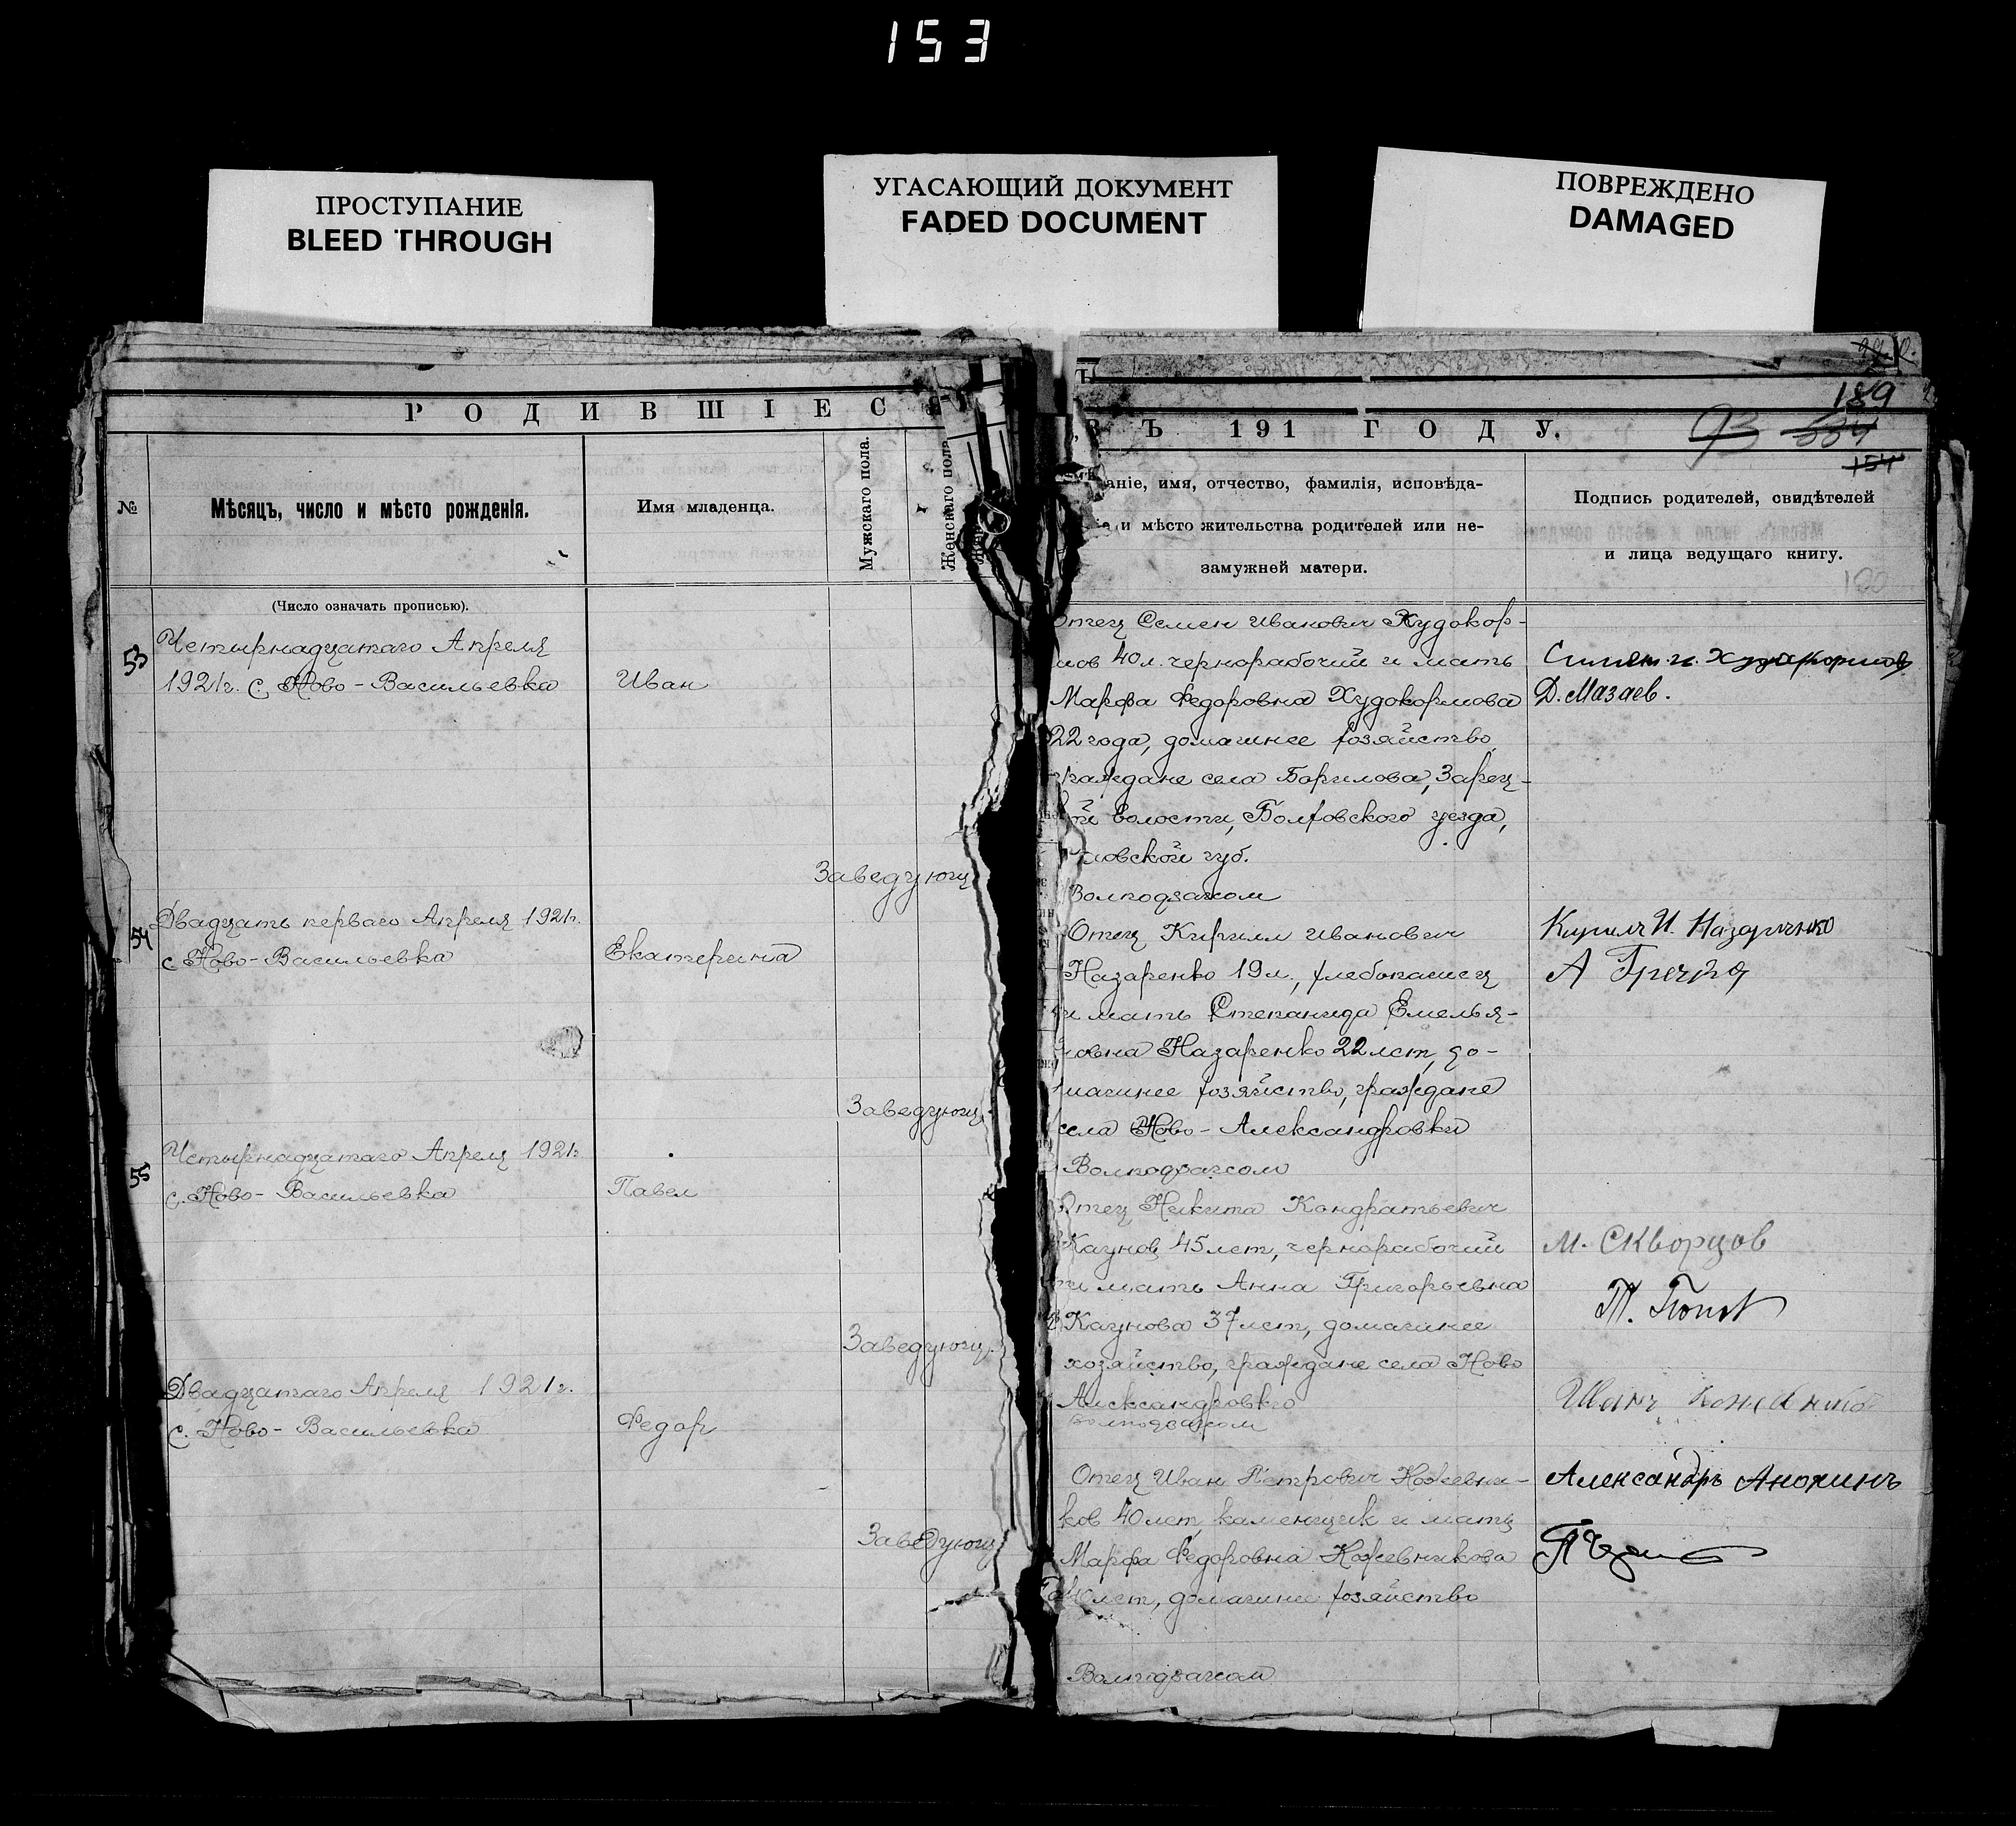 153
ПРОСТУПАНИЕ
BLEED THROUGH
УГАСАЮЩИЙ ДОКУМЕНТ
FADED DOCUMENT
ПОВРЕЖДЕНО
DAMAGED
РОДИВШІЕС
№
Мѣсяцъ, число и мѣсто рожденія.
Имя младенца.
Мужскаго пола.
Женскаго пола
(Число означать прописью).
53
Четырнадцатаго Апреля
1921г. с. Ново-Васильевка
Иван
Заведующ
54
Двадцать перваго Апреля 1921г.
с. Ново-Васильевка
Екатерина
Заведующ
55
Четырнадцатаго Апреля 1921г
с. Ново-Васильевка
Павел
Заведующ
Двадцатаго Апреля 1921г.
с. Ново-Васильевка
Федор
Заведующ
189
93
154
100
ВЪ 191 ГОДУ.
аніе, имя, отчество, фамилія, исповѣда-
и мѣсто жительства родителей или не-
замужней матери.
Подпись родителей, свидѣтелей
и лица ведущаго книгу.
Отец Семен Иванович Худокор-
мов 40 л. чернорабочий и мать
Марфа Федоровна Худокормова
22 года, домашнее хозяйство,
граждане села Борилова, Зарец-
кой волости, Болховского уезда,
ловской губ.
Волподзагсом
Д. Мазаев.
Отец Кирилл Иванович
Назаренко 19 л., хлебопашец
и мать Степанида Емелья-
новна Назаренко 22 лет, до-
машнее хозяйство, граждане
села Ново-Александровки
Волподзагсом
Кирил И. Назаренко
Отец Никита Кондратьевич
Каунов 45 лет, чернорабочий
и мать Анна Григорьевна
Каунова 37 лет, домашнее
хозяйство, граждане села Ново
Александровка
Волподзагсом
М. Скворцов
Т. Попов
Отец Иван Петрович Кожевни-
ков 40 лет, каменщик и мать
Марфа Федоровна Кожевникова
40 лет, домашнее хозяйство
Волподзагсом
Александръ Анохинъ